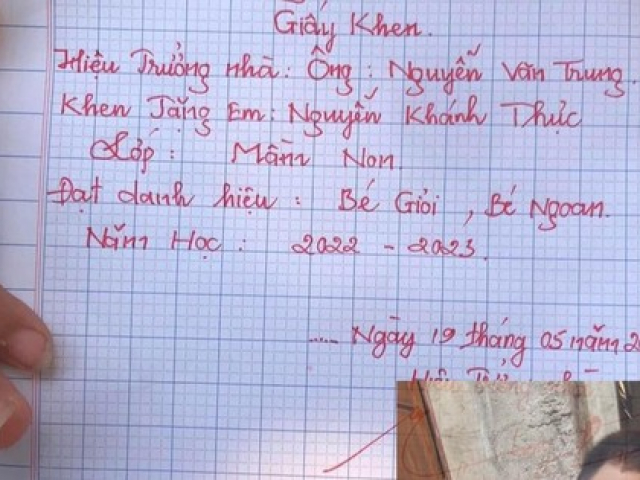 Giấy Khen.
Hiệu Trưởng nhà: Ông: Nguyễn Văn Trung.
Khen Tặng Em: Nguyễn Khánh Thực
Lớp: Mầm Non.
Đạt danh hiệu: Bé Giỏi, Bé Ngoan.
Năm Học: 2022 - 2023.
..... Ngày 19 tháng 05 năm 2